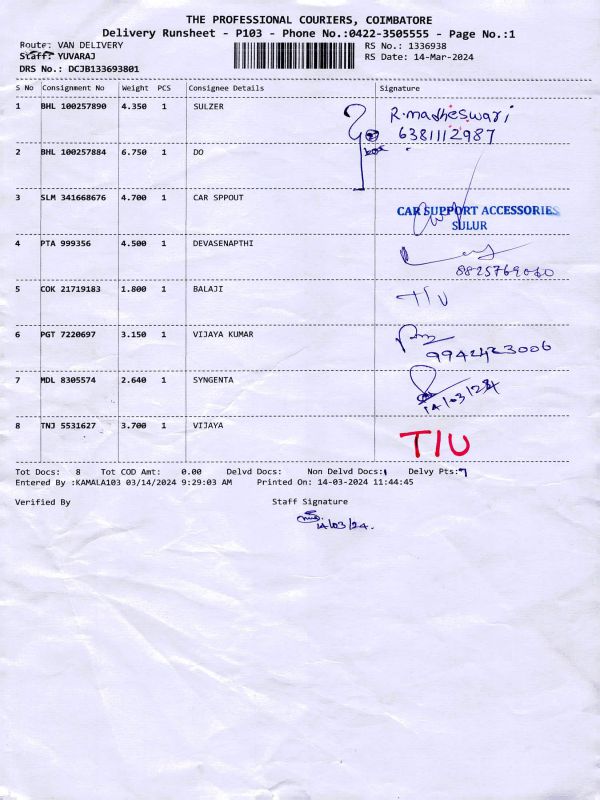 THE PROFESSIONAL COURIERS, COIMBATORE
Delivery Runsheet - P103 - Phone No.:0422-3505555 - Page No.:1
Route: VAN DELIVERY
RS No.: 1336938
Staff: YUVARAJ
RS Date: 14-Mar-2024
DRS No.: DCJB133693801
S No Consignment No Weight PCS Consignee Details Signature
1 BHL 100257890 4.350 1 SULZER R.madheswari
6381112987
2 BHL 100257884 6.750 1 DO
3 SLM 341668676 4.700 1 CAR SPPOUT
CAR SUPPORT ACCESSORIES
SULUR
4 PTA 999356 4.500 1 DEVASENAPTHI
5 COK 21719183 1.800 1 BALAJI TIU
6 PGT 7220697 3.150 1 VIJAYA KUMAR
9942423006
7 MDL 8305574 2.640 1 SYNGENTA
14/03/24
8 TNJ 5531627 3.700 1 VIJAYA TIU
Tot Docs: 8 Tot COD Amt: 0.00 Delvd Docs: Non Delvd Docs:1 Delvy Pts:7
Entered By :KAMALA103 03/14/2024 9:29:03 AM Printed On: 14-03-2024 11:44:45
Verified By Staff Signature
14/03/24.